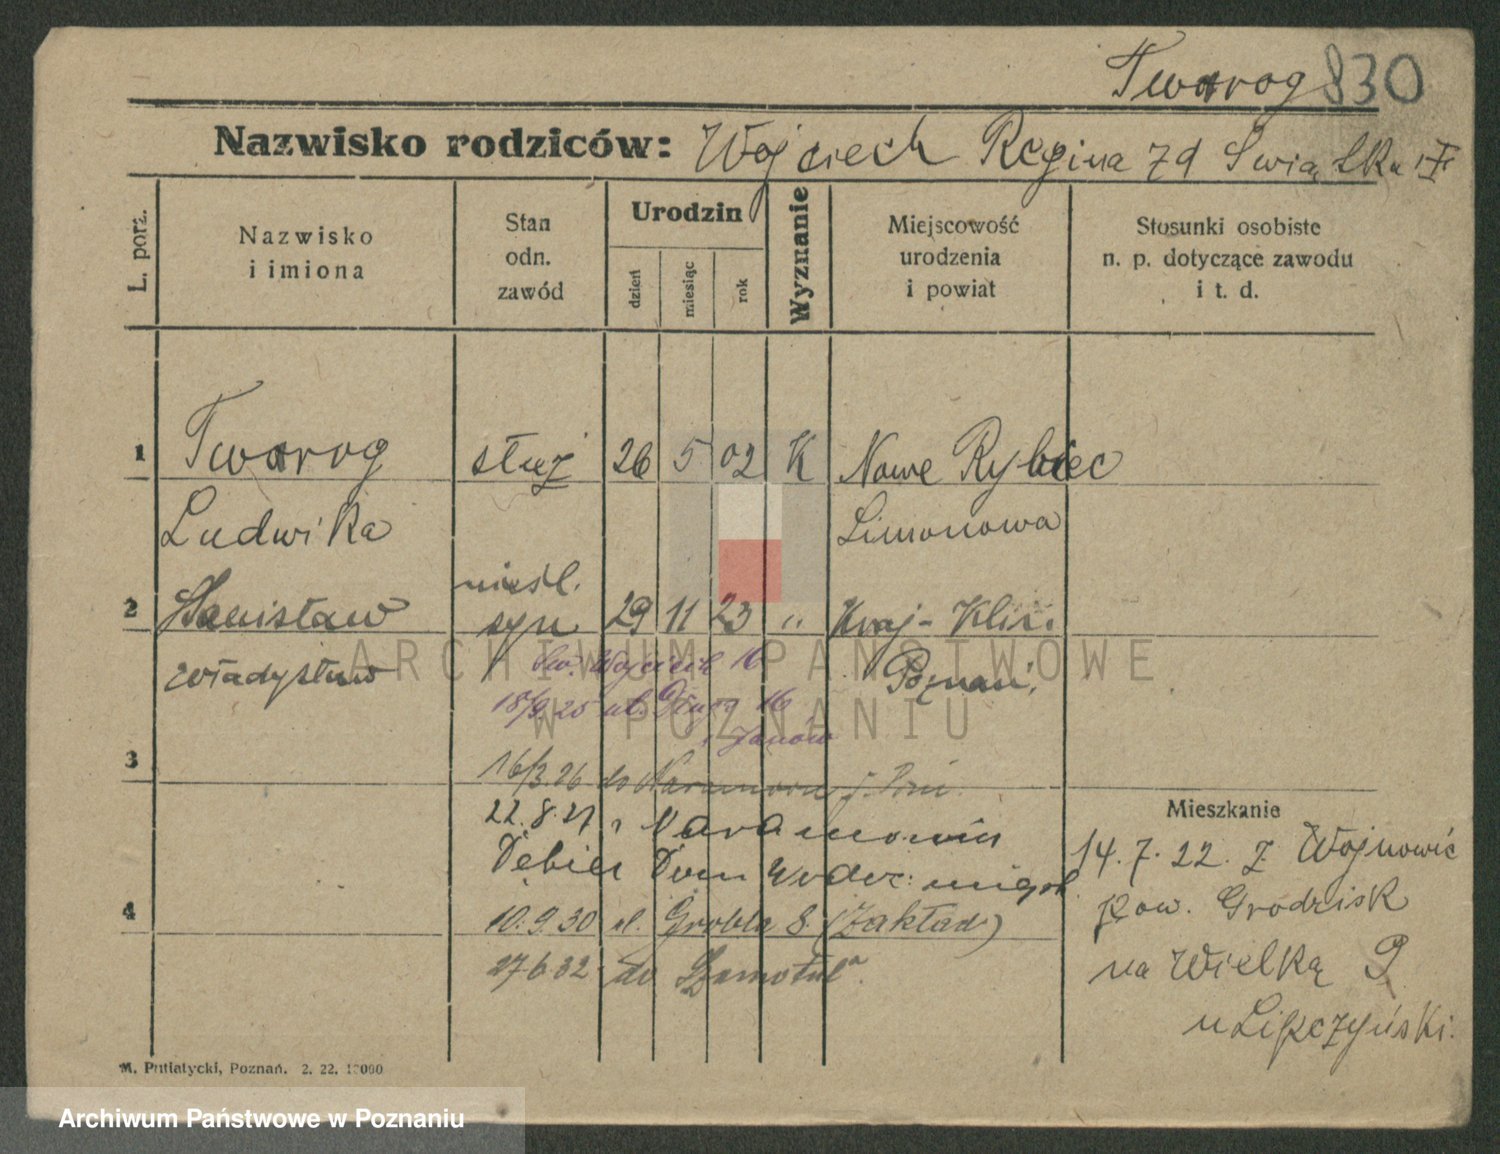 Tworog 830
Nazwisko rodziców: Wojciech Regina zd Swiątka
L. porz.
Nazwisko
i imiona
Stan
odn.
zawód
Urodzin
dzień
miesiąc
rok
Wyznanie
Miejscowość
urodzenia
i powiat
Stosunki osobiste
n. p. dotyczące zawodu
i t. d.
1 Tworog służ 26 5 02 K Nowe Rybiec
Ludwika Limonowa
nieśl.
2 Stanisław syn 29 11 23 " Kraj-Kliń.
Władysław Poznań.
św. Wojciech 16
18/9 25 ul. Długa 16
Janów
3
16/3.26 do Naramow
22.8.27 Naramowice
Dębiec Dom
4
10.9.30 ul. Grobla 8. (Zakład)
27.6.32 do Szamotuł
Mieszkanie
14.7.22. z Wojnowic
pow. Grodzisk
na Wielką 9
u Lipczyński.
M. Putiatycki, Poznań. 2. 22.
ARCHIWUM PAŃSTWOWE
W POZNANIU
Archiwum Państwowe w Poznaniu